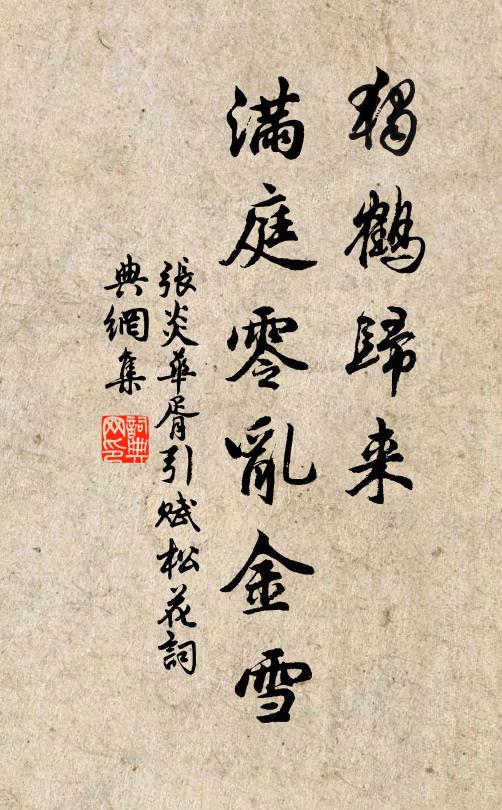 獨鶴歸来
滿庭零亂金雪
張炎華胥引賦松花詞
典網集
詞典
网印